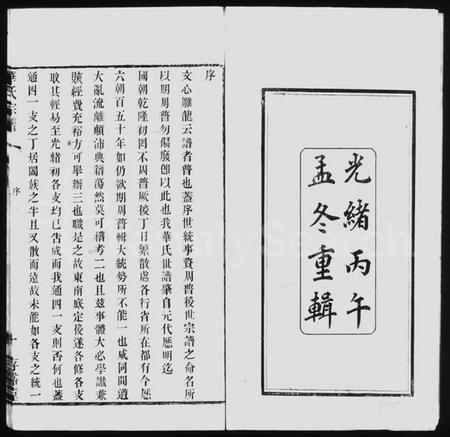 光緒丙午
孟冬重輯
序
文心雕龍云譜者普也蓋序世統事資周普後世宗譜之命名所
以期周普勿偏廢卽以此也我華氏世譜肇自元代歷明迄
國朝乾隆初罔不周普厥後丁日繁散處各行省所在都有今歷
六朝百五十年如仍欲期周普輯大統勢所不能一也咸同間遭
大亂流離顛沛典籍蕩然莫可稽考二也且茲事體大必學識兼
賅經費充裕方可舉辦三也職是之故東南底定後遂各修各支
取其輕易至光緒初各支均已告成而我通四一支則否何也蓋
通四一支之丁居闔族之半且又散而遠故未能如各支之統一
華氏宗譜
序
一
存裕堂